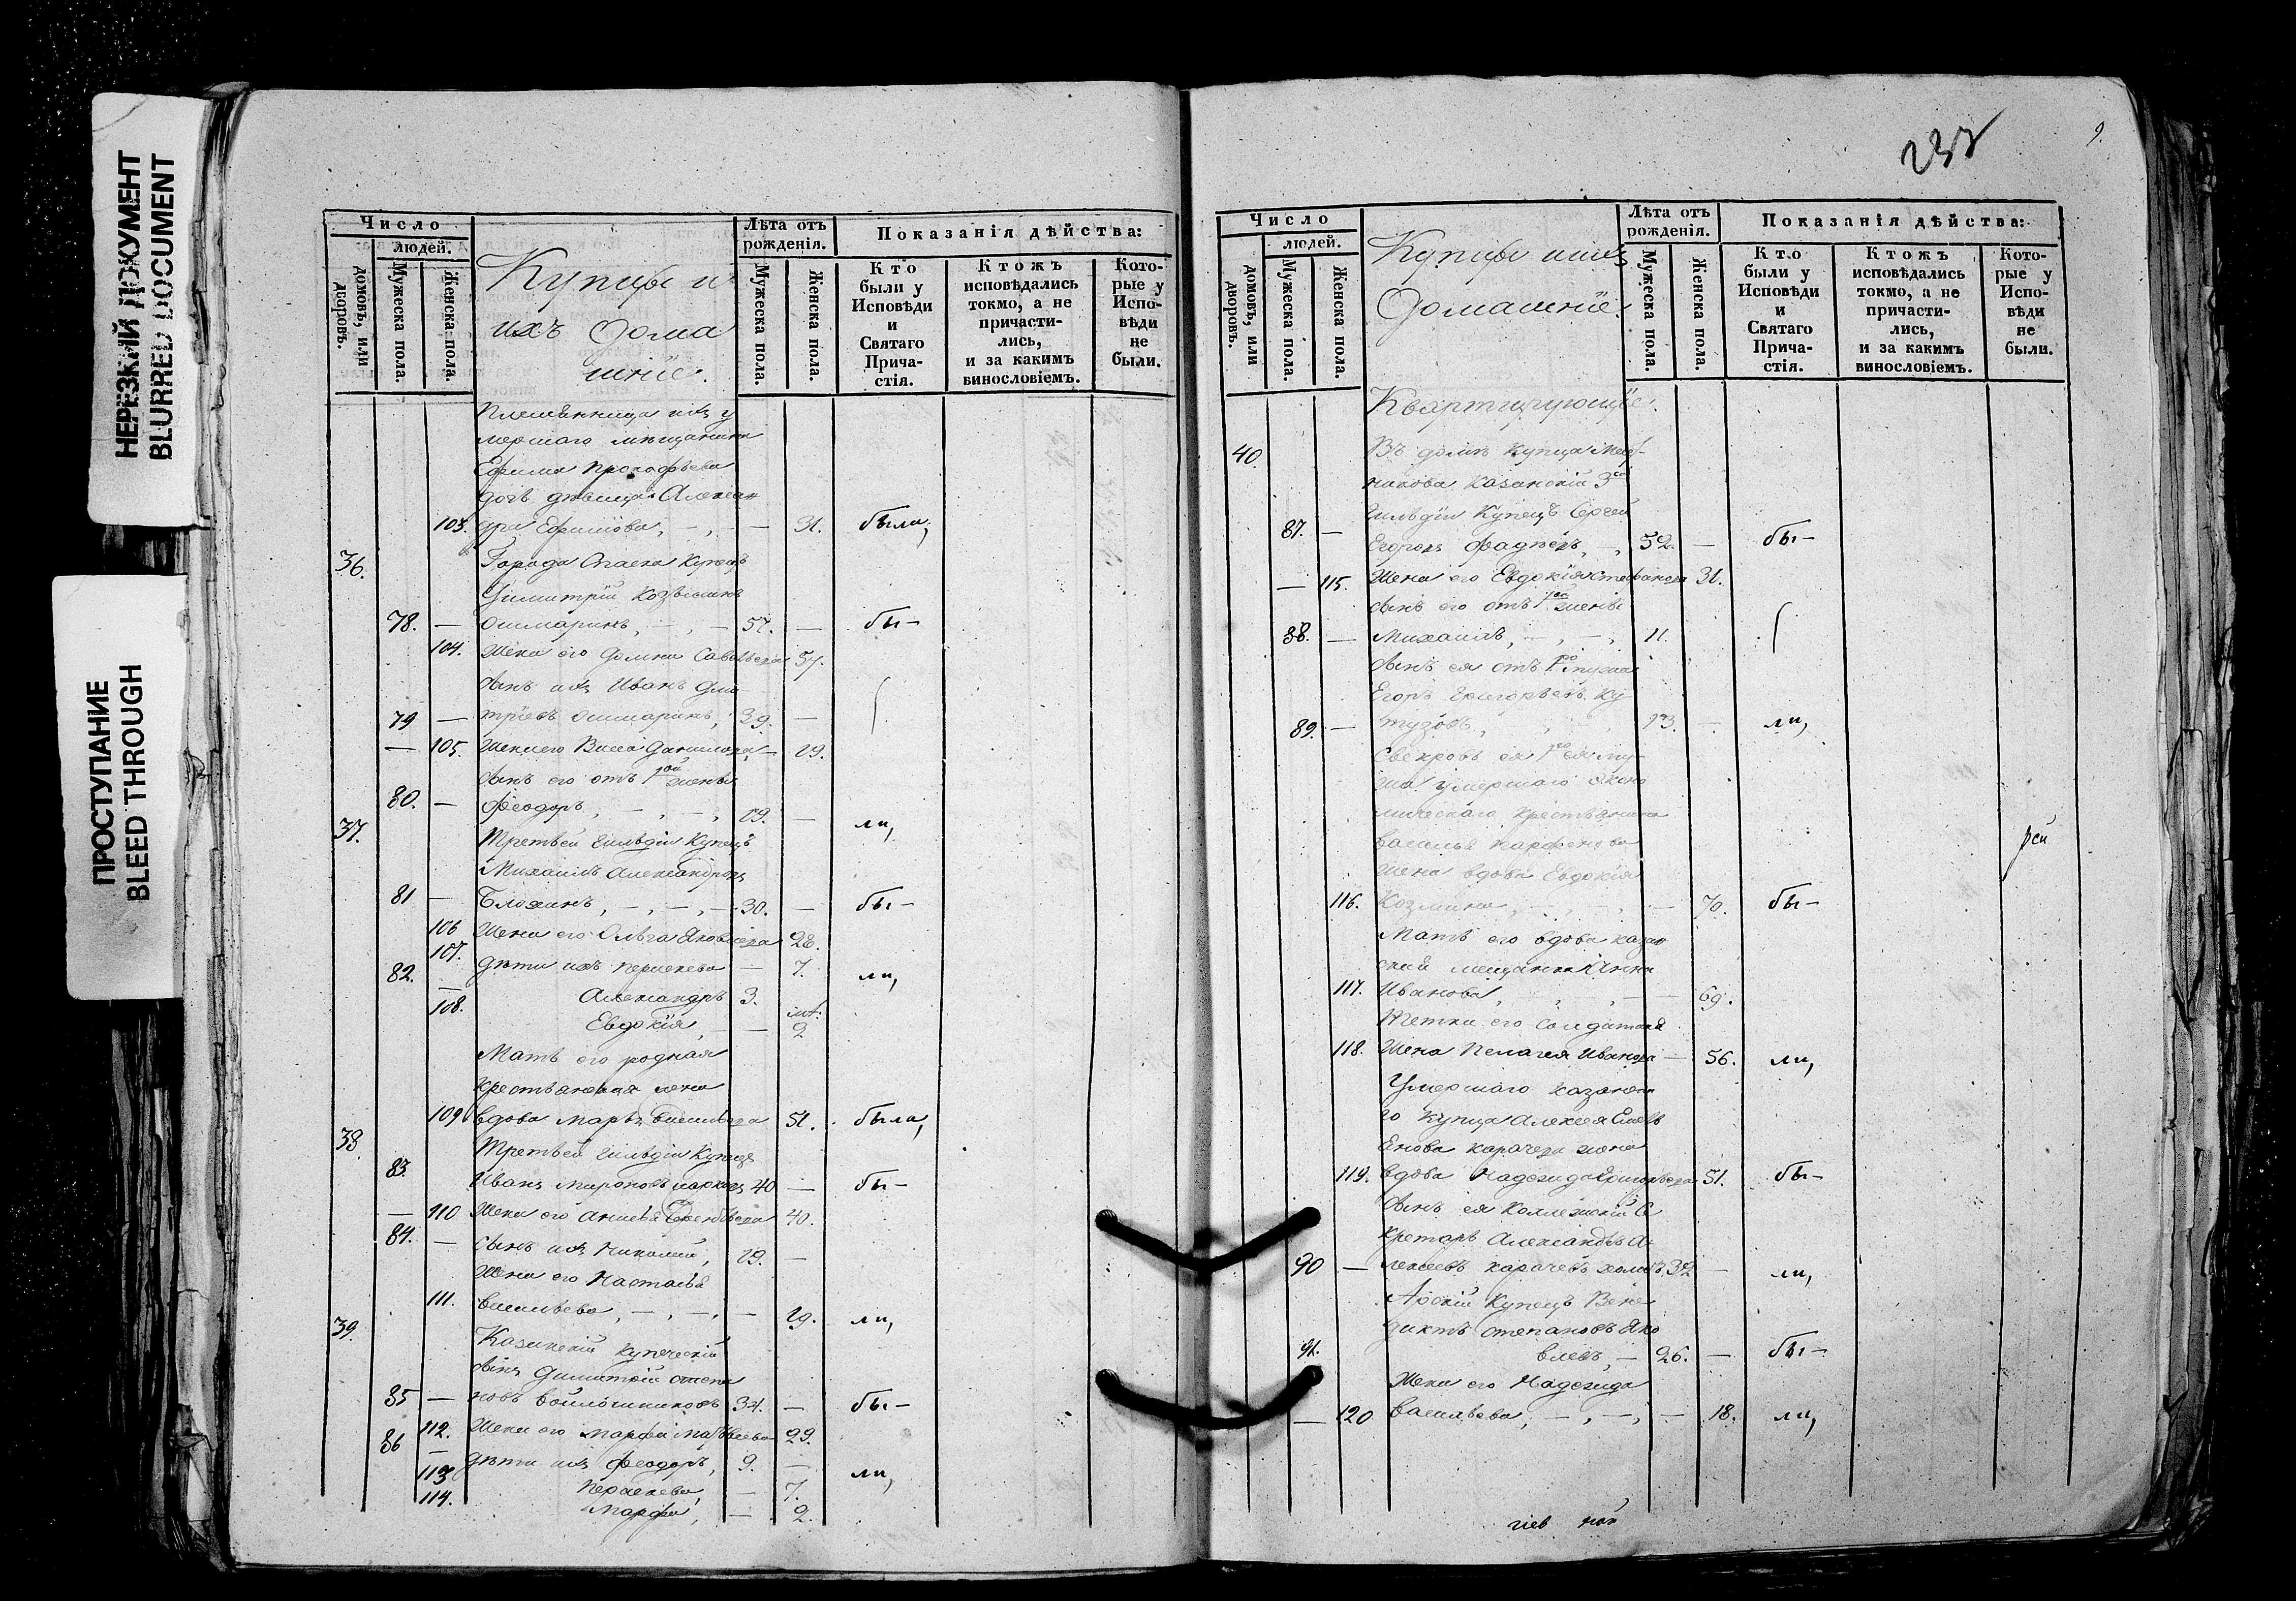 НЕРЕЗКИЙ ДОКУМЕНТ
BLURRED DOCUMENT
ПРОСТУПАНИЕ
BLEED THROUGH
Число
людей.
домовъ, или дворовъ.
Мужеска пола.
Женска пола.
Купцы и
ихъ дома
шніе.
Лѣта отъ рожденія.
Мужеска пола.
Женска пола.
Показанія дѣйства:
Кто были у Исповѣди и Святаго Прича-стія.
Ктожъ исповѣдались токмо, а не причасти-лись, и за какимъ винословіемъ.
Кото-рые у Испо-вѣди не были.
Племянница ихъ у
мершаго мѣщанина
Ефима Прокофьева
дочь дѣвица Алексан
103. дра Ефимова, — 31. была,
36. Города Спаска Купецъ
Димитрій Козьминъ
78. — Ошмаринъ, — 57. — бы—
104. Жена его Домна Савельева 54.
Сынъ ихъ Иванъ Дми
79 — тріевъ Ошмаринъ, 39. —
— 105. Жена его Васса Данилова, — 29.
Сынъ его отъ 1ой жены
80. — Феодоръ, — 19. — ли,
37. Третьей гильдіи Купецъ
Михаилъ Александровъ
81 — Блохинъ, — 30. — бы—
106 Жена его Ольга Яковлева 28.
107. дѣти ихъ Параскева — 7.
82. — Александръ 3. ли,
108. Евдокія, — 2
Мать его родная
крестьянская жена
109 вдова Марья Васильева 51. была,
38. Третьей гильдіи Купецъ
83. Иванъ Мироновъ 40 — бы—
— 110 Жена его 40.
84. — Сынъ ихъ Николай, 19. —
Жена его Настасья
111. Васильева, — 19. ли,
39. Казанскій купеческій
сынъ Димитрій Степа
85 — новъ Войлошниковъ 34. — бы—
112. Жена его Марфа Матвѣева 29.
86 — дѣти ихъ Феодоръ, 9. —
113 Параскева, — 7. ли,
114. Марфа, — 2.
237
9.
Число
людей.
домовъ, или дворовъ.
Мужеска пола.
Женска пола.
Купцы и ихъ
домашніе.
Лѣта отъ рожденія.
Мужеска пола.
Женска пола.
Показанія дѣйства:
Кто были у Исповѣди и Святаго Прича-стія.
Ктожъ исповѣдались токмо, а не причасти-лись, и за какимъ винословіемъ.
Кото-рые у Испо-вѣди не были.
Квартирующіе.
40. Въ домѣ купца
Казанскій 3ей
гильдіи Купецъ Сергей
87. — Егоровъ Фадѣевъ, — 52. — бы—
— 115. Жена его Евдокія Стефанова 31.
Сынъ его отъ 1ой жены
88. — Михаилъ, — 11.
Сынъ ея отъ 1го мужа
Егоръ Григорьевъ Ку
89. — тузовъ, 13. — ли,
Свекровь ея 1го ея му
жа умершаго эконо
мическаго крестьянина
Василья Парфенова
жена вдова Евдокія
116. Козмина, — 70. бы—
Мать его вдова казан
ская мещанка Анна
117. Иванова, — 69.
Тетка его солдатская
118. Жена Пелагея Иванова — 56. ли,
Умершаго казанска
го купца Алексея
жена
119. вдова Надежда Григорьева 51. бы—
Сынъ ея Коллежскій Се
кретарь Александръ А
90 — лексеевъ холостъ 32 — ли,
Арскій Купецъ Вене
диктъ Степановъ Яко
91. влевъ, — 26. — бы—
Жена его Надежда
— 120 Васильева, — 18. ли,